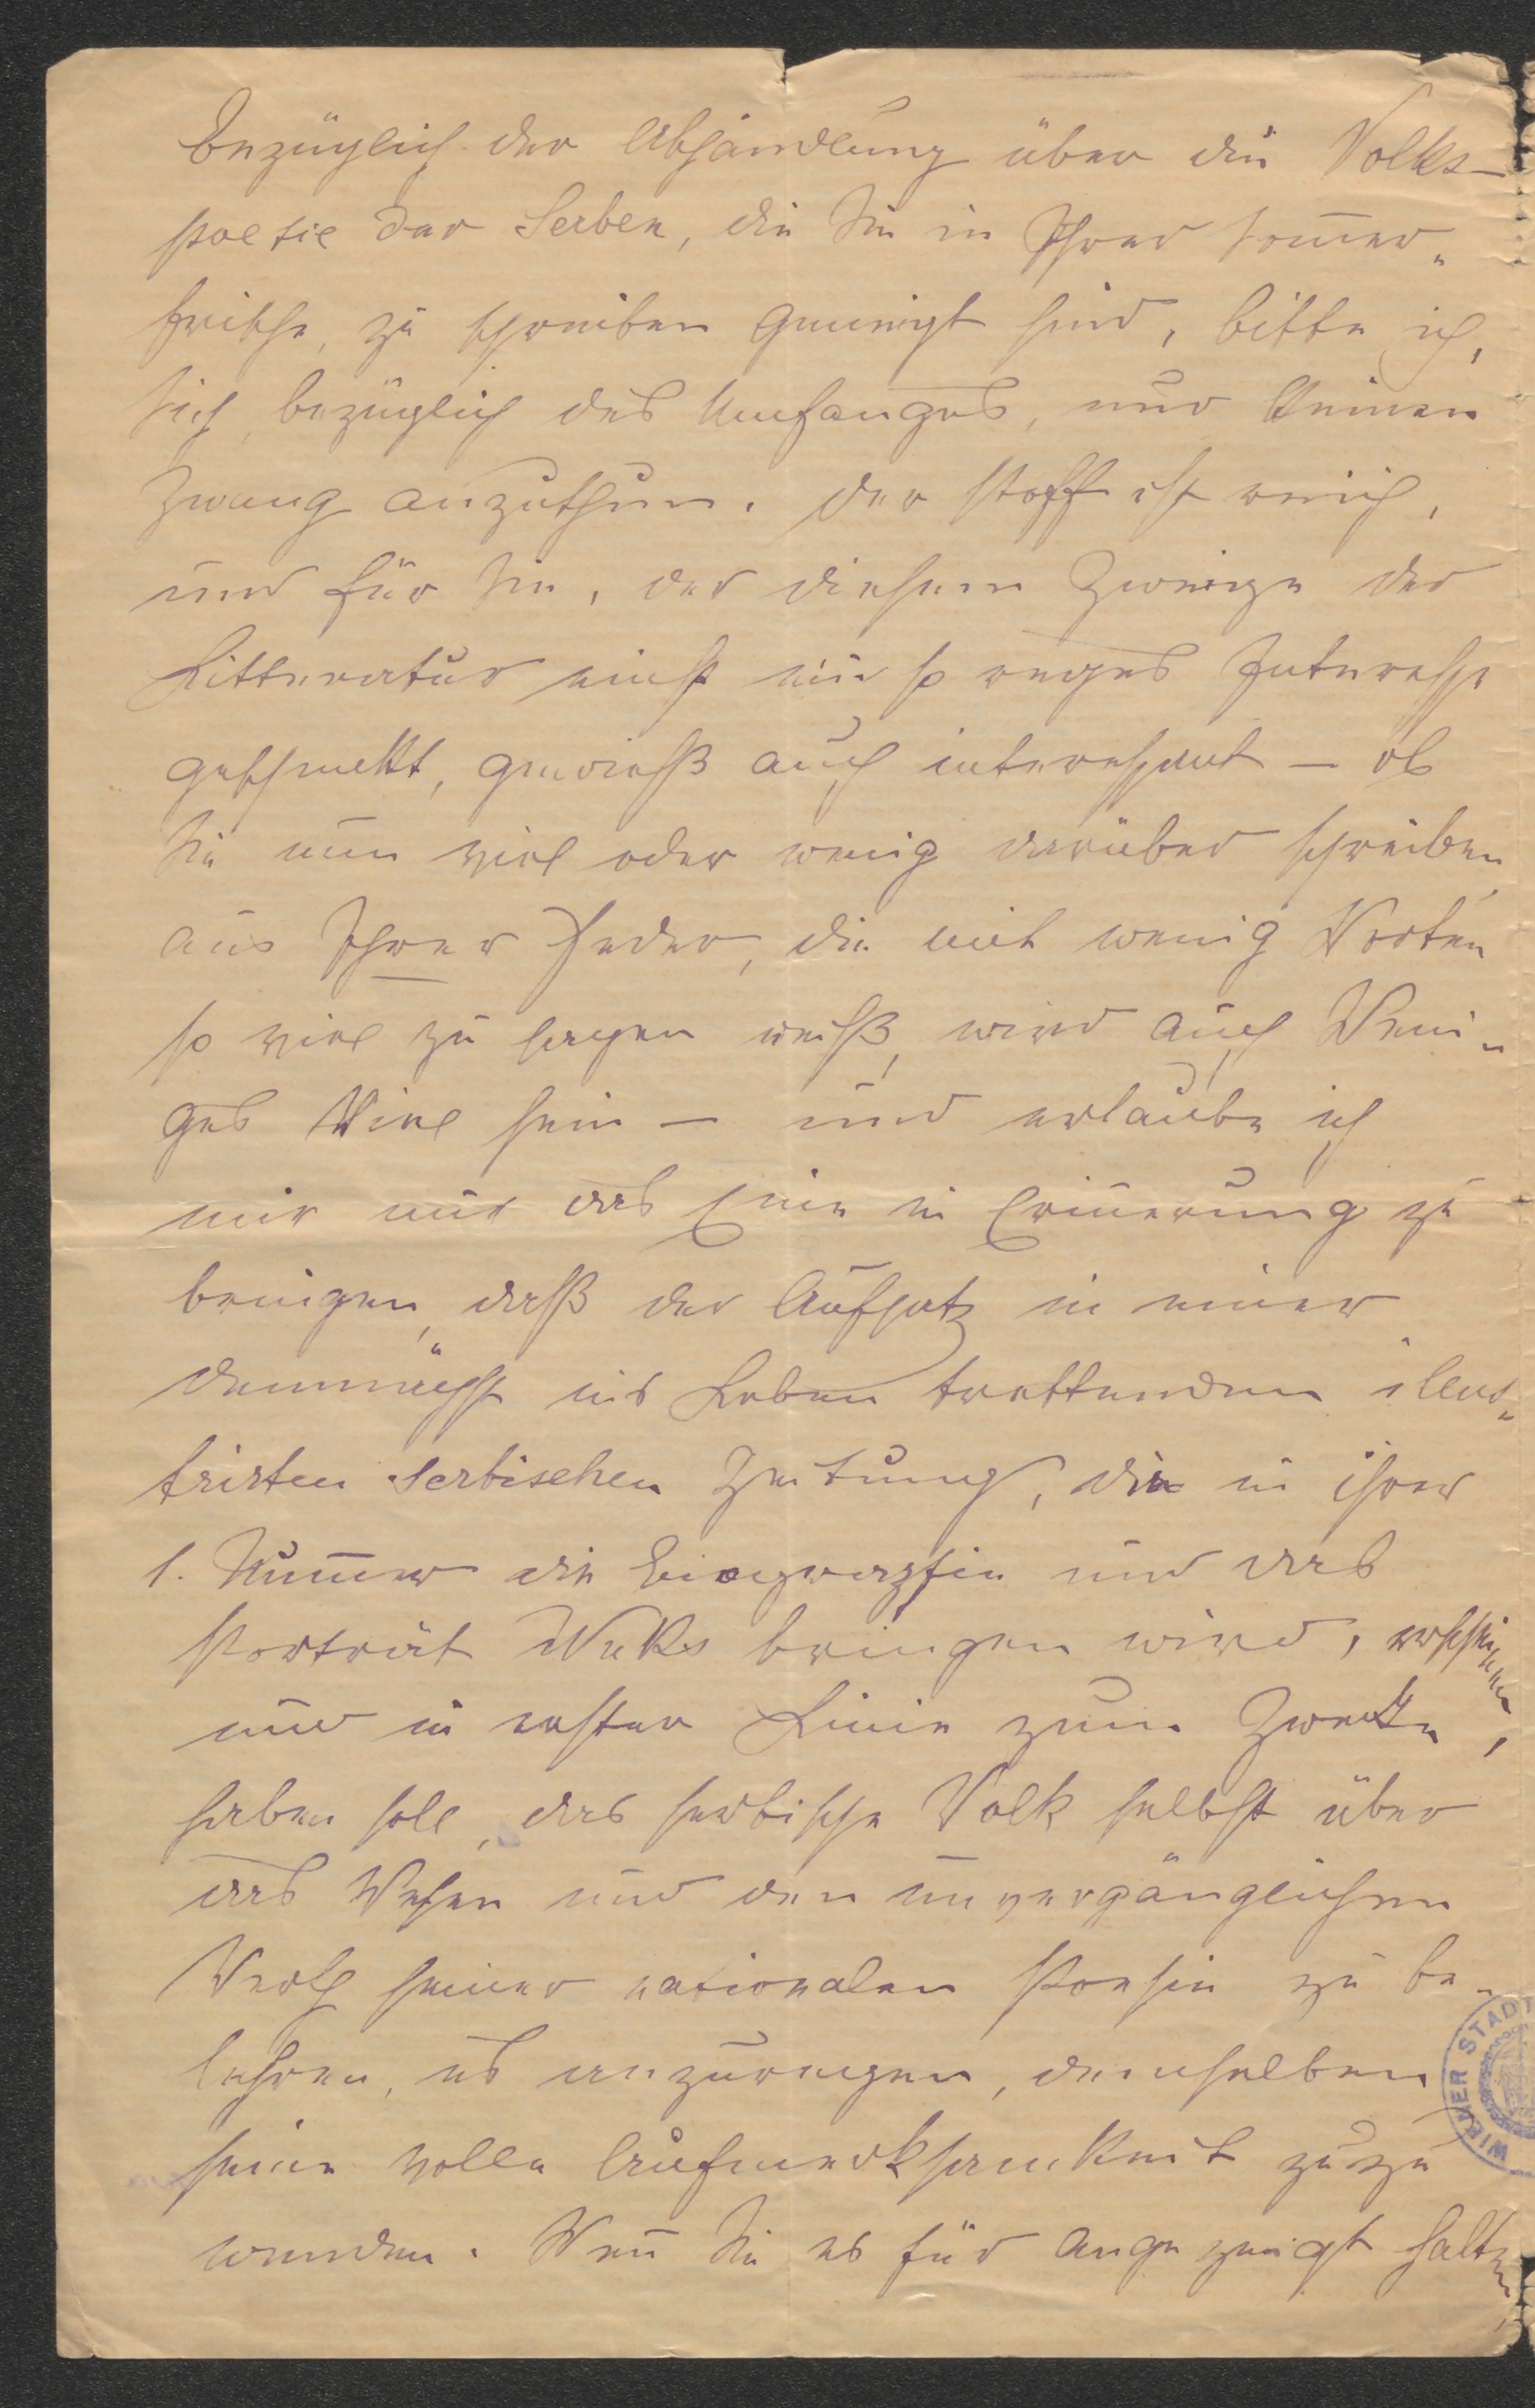 Bezüglich der Abhandlung über die Volks-
poesie der Serben, die Sie in Ihrer Som̅er-
frische, zu schreiben geneigt sind, bitte ich,
sich, bezüglich des Umfanges, nur keinen
Zwang anzuthun. Der Stoff ist reich,
und für Sie, der diesem Zweige der
Litteratur einst ein so reges Interesse
geschenkt, gewiß auch interessant – ob
Sie nun viel oder wenig darüber schreiben
aus Ihrer Feder, die mit wenig Worten
so viel zu sagen weiß, wird auch Weni-
ges Viel sein – und erlaube ich
mir nur das Eine in Erin̅erung zu
bringen, daß der Aufsatz in einer
demnächst ins Leben trettenden illus-
trirten serbischen Zeitung, die in ihrer
1. Num̅er die Biographie und das
Porträt Wuks bringen wird, erscheinen,
und in erster Linie zum Zwecke
haben soll, das serbische Volk selbst über
das Wesen und den unvergänglichen
Werth seiner nationalen Poesie zu be-
lehren, es anzuregen, demselben
seine volle Aufmerksamkeit zuzu
wenden. Wen̅ Sie es für angezeigt halten,
WIENER STADT